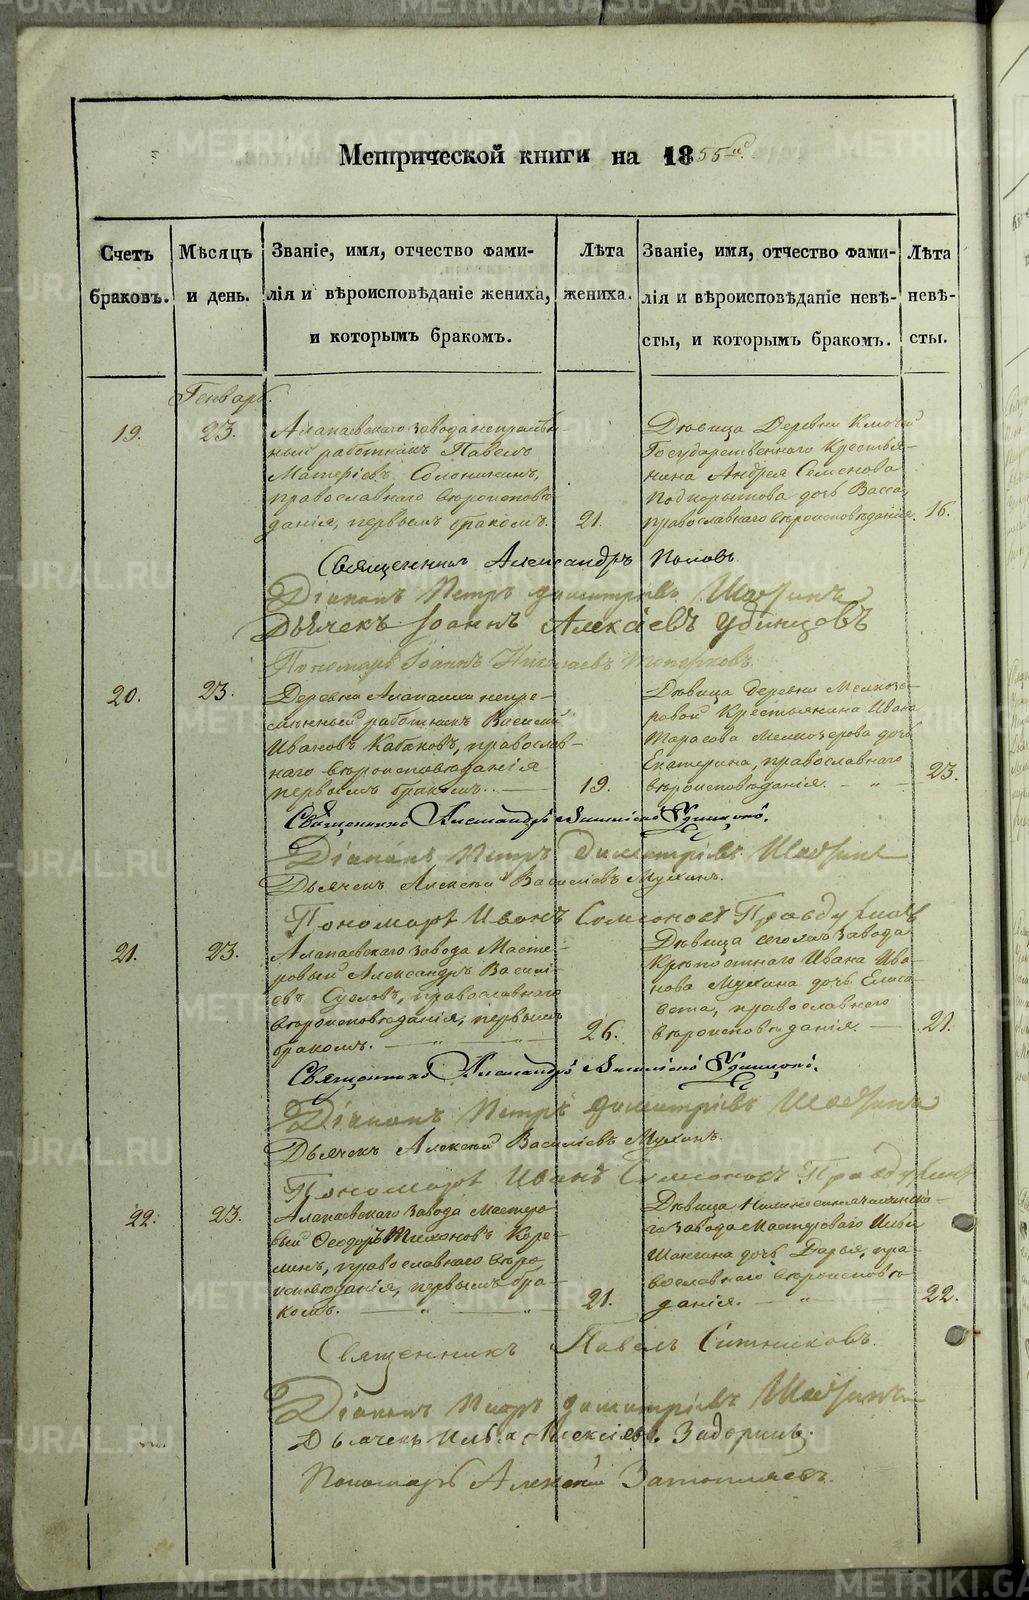 Метрической книги на 1855й
Счетъ браковъ.
Мѣсяцъ и день.
Званіе, имя, отчество фами-
лія и вѣроисповѣданіе жениха,
и которымъ бракомъ.
Лѣта жениха.
Званіе, имя, отчество фами-
лія и вѣроисповѣданіе невѣ-
сты, и которымъ бракомъ.
Лѣта невѣ-
сты.
Генварь.
19.
23.
Алапаевскаго завода непремѣн-
ный работникъ Павелъ
православнаго вѣроисповѣ-
данія, первымъ бракомъ.
21.
Дѣвица Деревни
Государственнаго Крестья-
нина Андрея Семенова
Подкорытова дочь Васса,
православнаго вѣроисповѣданія.
16.
Священникъ Александръ Поповъ
Діаконъ Петръ Димитріевъ
Дьячекъ Іоаннъ Алексіевъ Удинцовъ
Пономарь Іоаннъ Николаевъ Топорковъ.
20.
23.
Деревни Алапаихи непре-
мѣнный работникъ Василій
Ивановъ Кабаковъ, православ-
наго вѣроисповѣданія
первымъ бракомъ.
19.
Дѣвица деревни Мелкозе-
ровой Крестьянина Ивана
Тарасова Мелкозерова дочь
Екатерина, православнаго
вѣроисповѣданія. - „
23.
Священникъ Александръ Удинцовъ.
Діаконъ Петръ Димитріевъ
Дьячекъ Алексій Василіевъ Мухинъ.
Пономарь Иванъ Симеоновъ Правдухинъ
21.
23.
Алапаевскаго завода Масте-
ровый Александръ Василі-
евъ Сусловъ, православнаго
вѣроисповѣданія, первымъ
бракомъ. - „ - „
26.
Дѣвица сего завода
Крѣпостнаго Ивана Ива-
нова Мухина дочь Елиса-
вета, православнаго
вѣроисповѣданія. -
21.
Священникъ Александръ Удинцовъ.
Діаконъ Петръ Димитріевъ
Дьячекъ Алексій Василіевъ Мухинъ.
Пономарь Иванъ Симеоновъ Правдухинъ
22.
23.
Алапаевскаго завода Мастеро-
вый Ѳеодоръ Тихоновъ Коре-
линъ, православнаго вѣро-
исповѣданія, первымъ бра-
комъ. - „ - „
21.
Дѣвица Нижнесинячихинска-
го завода Мастероваго Ильи
Шаньгина дочь Дарья, пра-
вославнаго вѣроисповѣ-
данія. - „ -
22.
Священникъ Павелъ Ситниковъ.
Діаконъ Петръ Димитріевъ
Дьячекъ Илья Алексіевъ Задоринъ.
Пономарь Алексій Затопляевъ.
METRIKI.GASO-URAL.RU